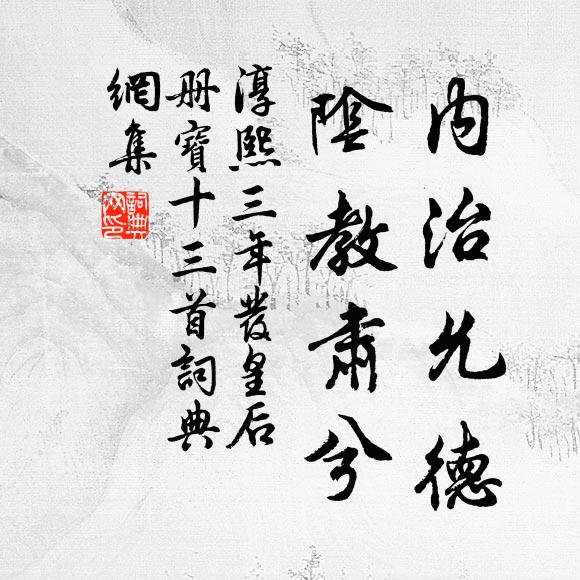 內治允德
陰教肅兮
淳熙三年發皇后
册寶十三首詞典
網集
詞典網印